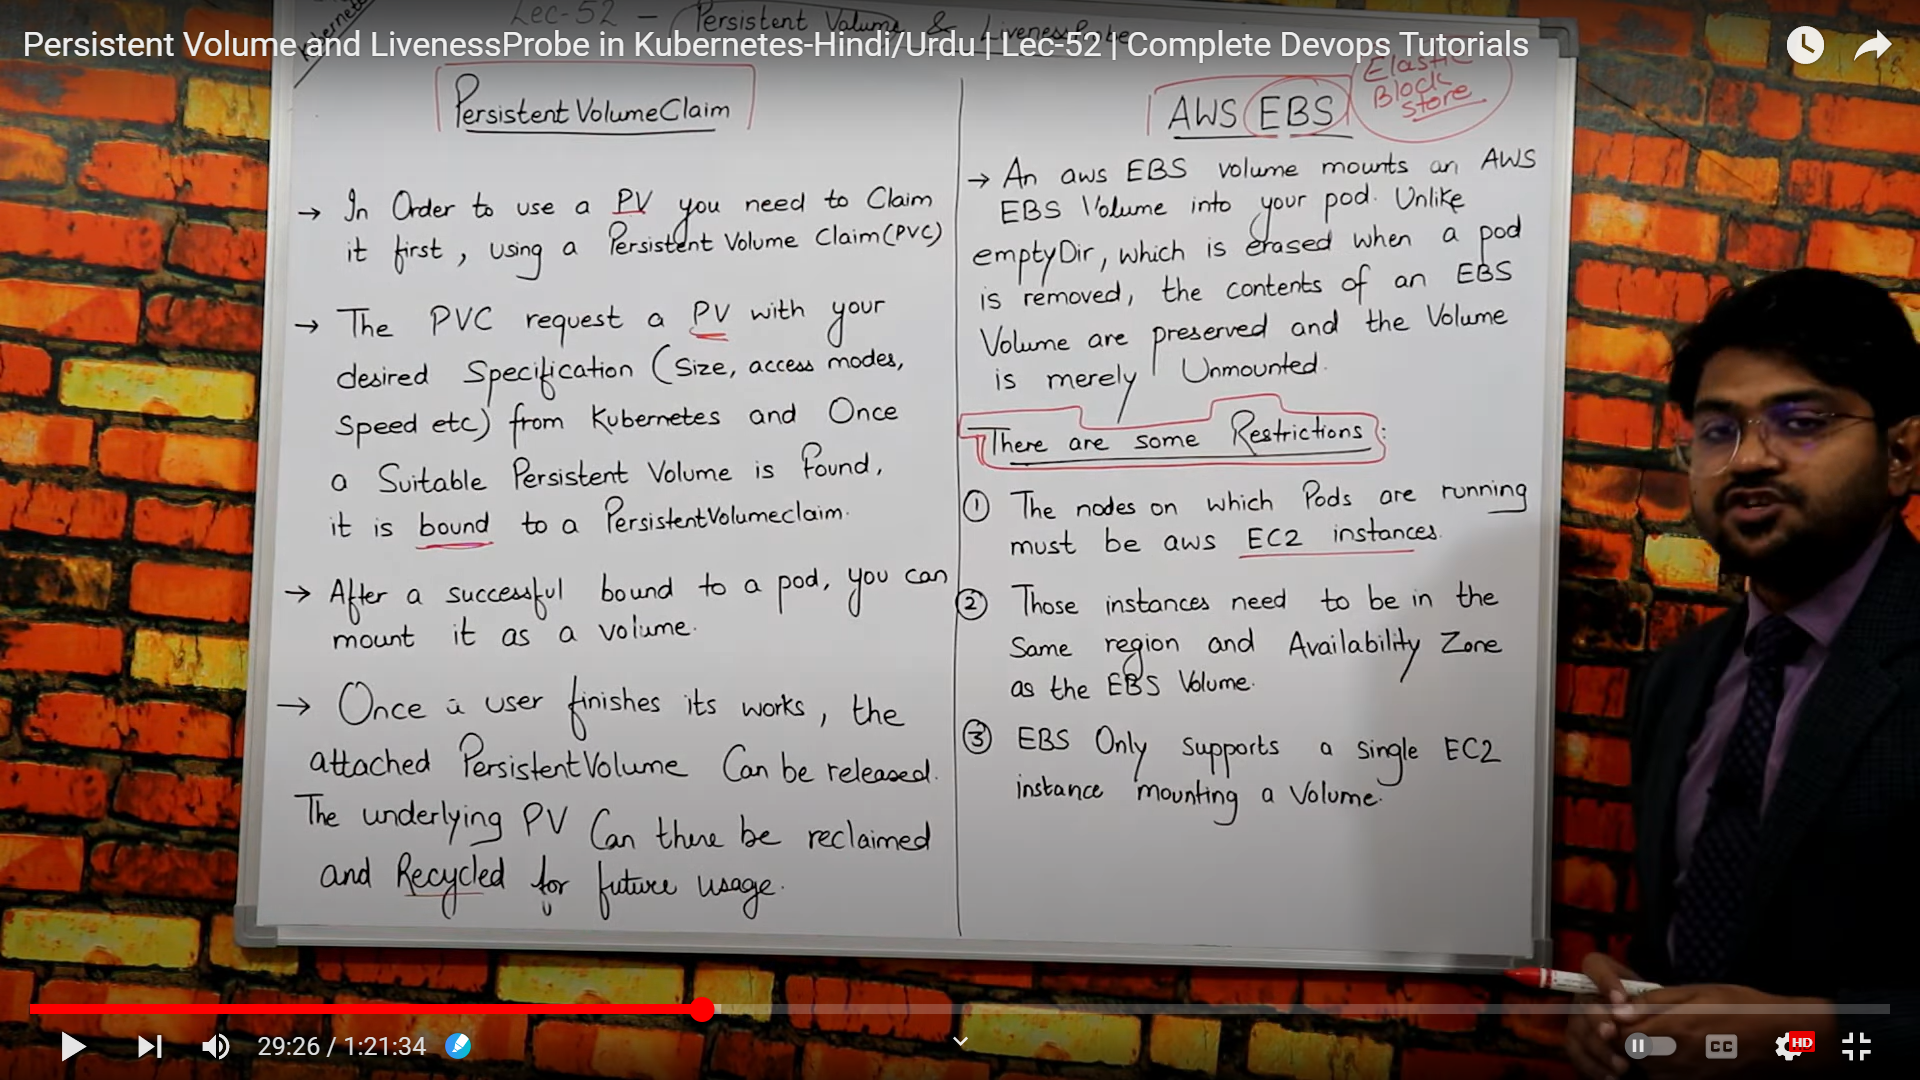 Lec-52 - Persistent Volume & LivenessProbe
Persistent Volume and LivenessProbe in Kubernetes-Hindi/Urdu | Lec-52 | Complete Devops Tutorials
Kubernetes
PersistentVolumeClaim
→ In Order to use a PV you need to Claim
it first, using a Persistent Volume Claim(PVC)
→ The PVC request a PV with your
desired Specification (Size, access modes,
Speed etc) from Kubernetes and Once
a Suitable Persistent Volume is Found,
it is bound to a PersistentVolumeclaim.
→ After a successful bound to a pod, you can
mount it as a volume.
→ Once a user finishes its works, the
attached PersistentVolume Can be released.
The underlying PV Can there be reclaimed
and Recycled for future usage.
AWS EBS
Elastic
Block
Store
→ An aws EBS volume mounts an AWS
EBS Volume into your pod. Unlike
emptyDir, which is erased when a pod
is removed, the contents of an EBS
Volume are preserved and the Volume
is merely Unmounted.
There are some Restrictions:
① The nodes on which Pods are running
must be aws EC2 instances.
② Those instances need to be in the
Same region and Availability Zone
as the EBS Volume.
③ EBS Only Supports a single EC2
instance mounting a Volume.
29:26 / 1:21:34
CC
HD